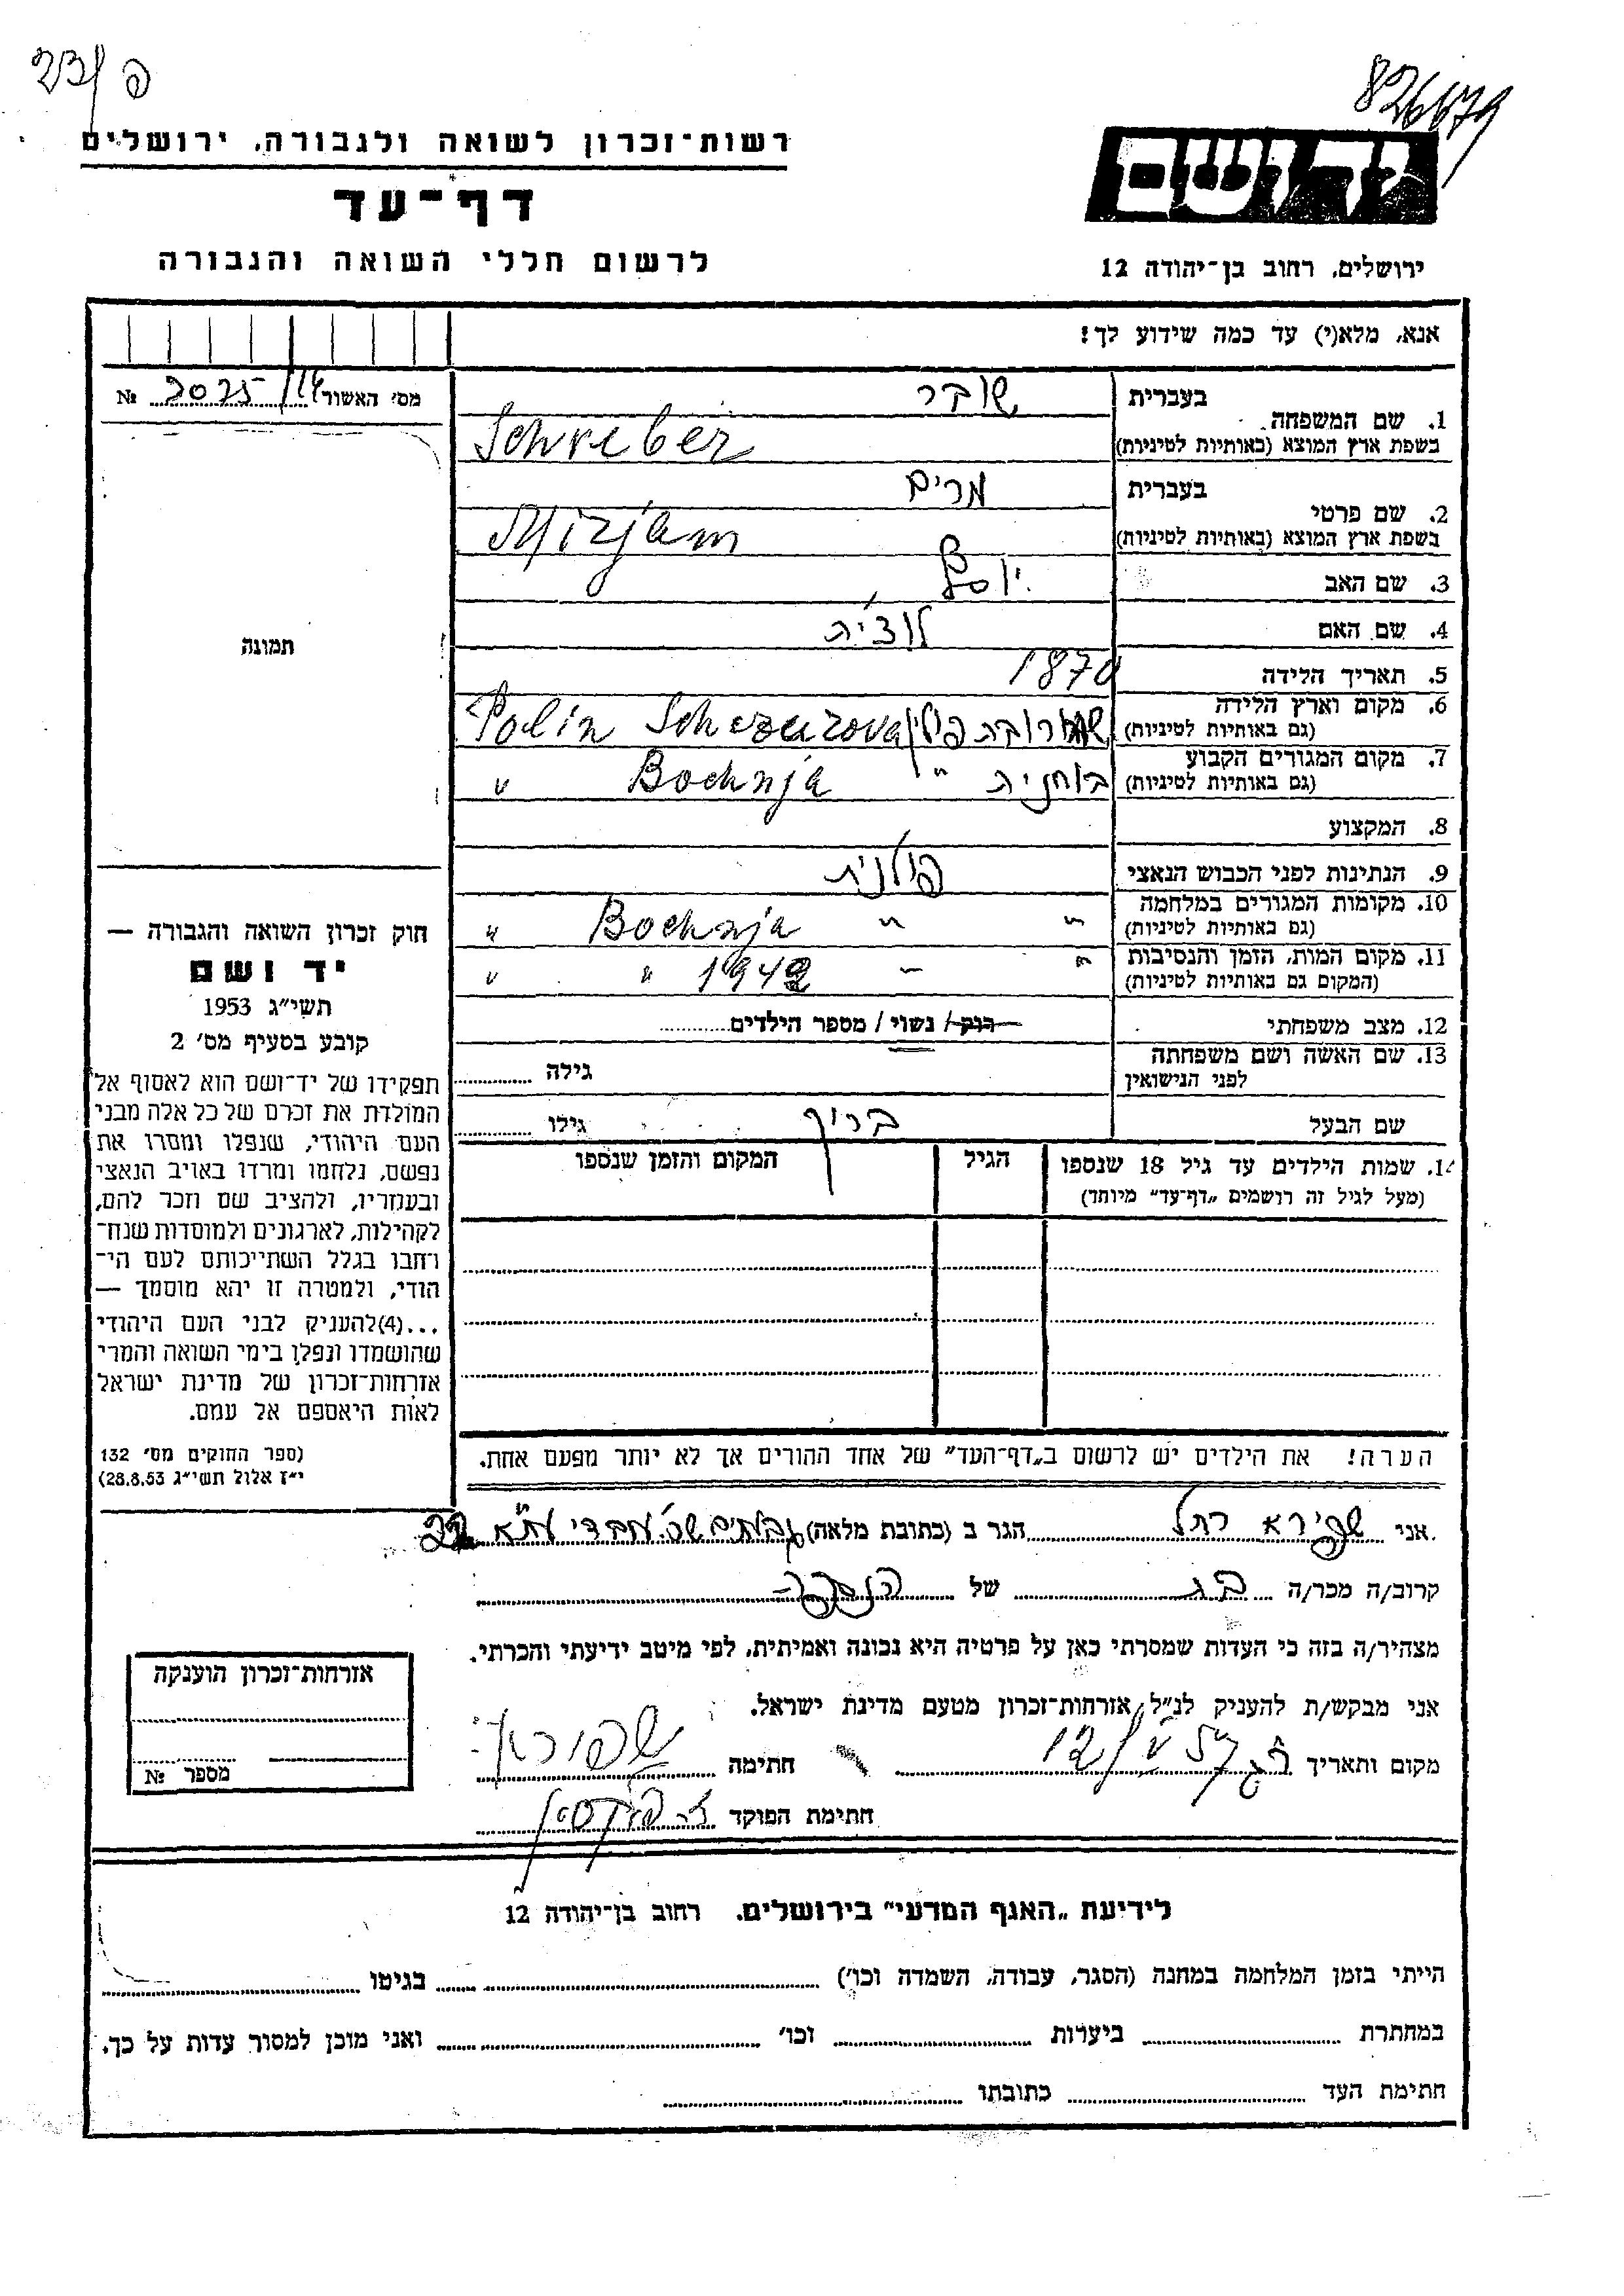 23/פ
826679
רשות־זכרון לשואה ולגבורה, ירושלים
דף־עד
לרשום חללי השואה והגבורה
יד ושם
ירושלים, רחוב בן־יהודה 12
אנא, מלא(י) עד כמה שידוע לך!
מס׳ האשור 14/2025 №
1. שם המשפחה
בעברית
בשפת ארץ המוצא (באותיות לטיניות)
Schreiber
2. שם פרטי
בעברית מרים
בשפת ארץ המוצא (באותיות לטיניות) Mirjam
3. שם האב יוסף
4. שם האם
5. תאריך הלידה 1870
6. מקום וארץ הלידה
(גם באותיות לטיניות) פולין Polin
7. מקום המגורים הקבוע
(גם באותיות לטיניות) בוחניה " Bochnja "
8. המקצוע
9. הנתינות לפני הכבוש הנאצי פולנית
10. מקומות המגורים במלחמה
(גם באותיות לטיניות) " " Bochnja "
11. מקום המות, הזמן והנסיבות
(המקום גם באותיות לטיניות) " " 1942 " "
12. מצב משפחתי רוק / נשוי / מספר הילדים
13. שם האשה ושם משפחתה
לפני הנישואין גילה
שם הבעל ברוך גילו
14. שמות הילדים עד גיל 18 שנספו
(מעל לגיל זה רושמים „דף־עד״ מיוחד)
הגיל
המקום והזמן שנספו
תמונה
חוק זכרון השואה והגבורה —
יד ושם
תשי״ג 1953
קובע בסעיף מס׳ 2
תפקידו של יד־ושם הוא לאסוף אל
המולדת את זכרם של כל אלה מבני
העם היהודי, שנפלו ומסרו את
נפשם, נלחמו ומרדו באויב הנאצי
ובעוזריו, ולהציב שם וזכר להם,
לקהילות, לארגונים ולמוסדות שנח־
רבו בגלל השתייכותם לעם הי־
הודי, ולמטרה זו יהא מוסמך —
...(4)להעניק לבני העם היהודי
שהושמדו ונפלו בימי השואה והמרי
אזרחות־זכרון של מדינת ישראל
לאות היאספם אל עמם.
(ספר החוקים מס׳ 132
י״ז אלול תשי״ג 28.8.53)
הערה! את הילדים יש לרשום ב„דף־העד״ של אחד ההורים אך לא יותר מפעם אחת.
אני שפירא רחל הגר ב (כתובת מלאה) גבעתיים
קרוב/ה מכר/ה בת של הנספה
מצהיר/ה בזה כי העדות שמסרתי כאן על פרטיה היא נכונה ואמיתית, לפי מיטב ידיעתי והכרתי.
אני מבקש/ת להעניק לנ״ל, אזרחות־זכרון מטעם מדינת ישראל.
מקום ותאריך ר.ג 12/V 57 חתימה שפירא
חתימת הפוקד
אזרחות־זכרון הוענקה
מספר №
לידיעת „האגף המדעי״ בירושלים, רחוב בן־יהודה 12
הייתי בזמן המלחמה במחנה (הסגר, עבודה, השמדה וכו׳) בגיטו
במחתרת ביערות וכו׳ ואני מוכן למסור עדות על כך.
חתימת העד כתובתו